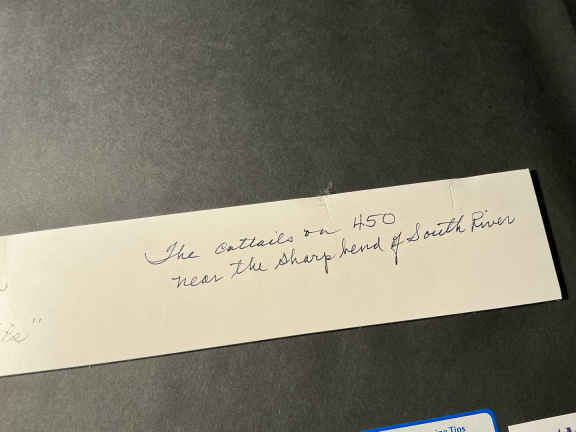 The cattails on 450
near the sharp bend of South River
Tips